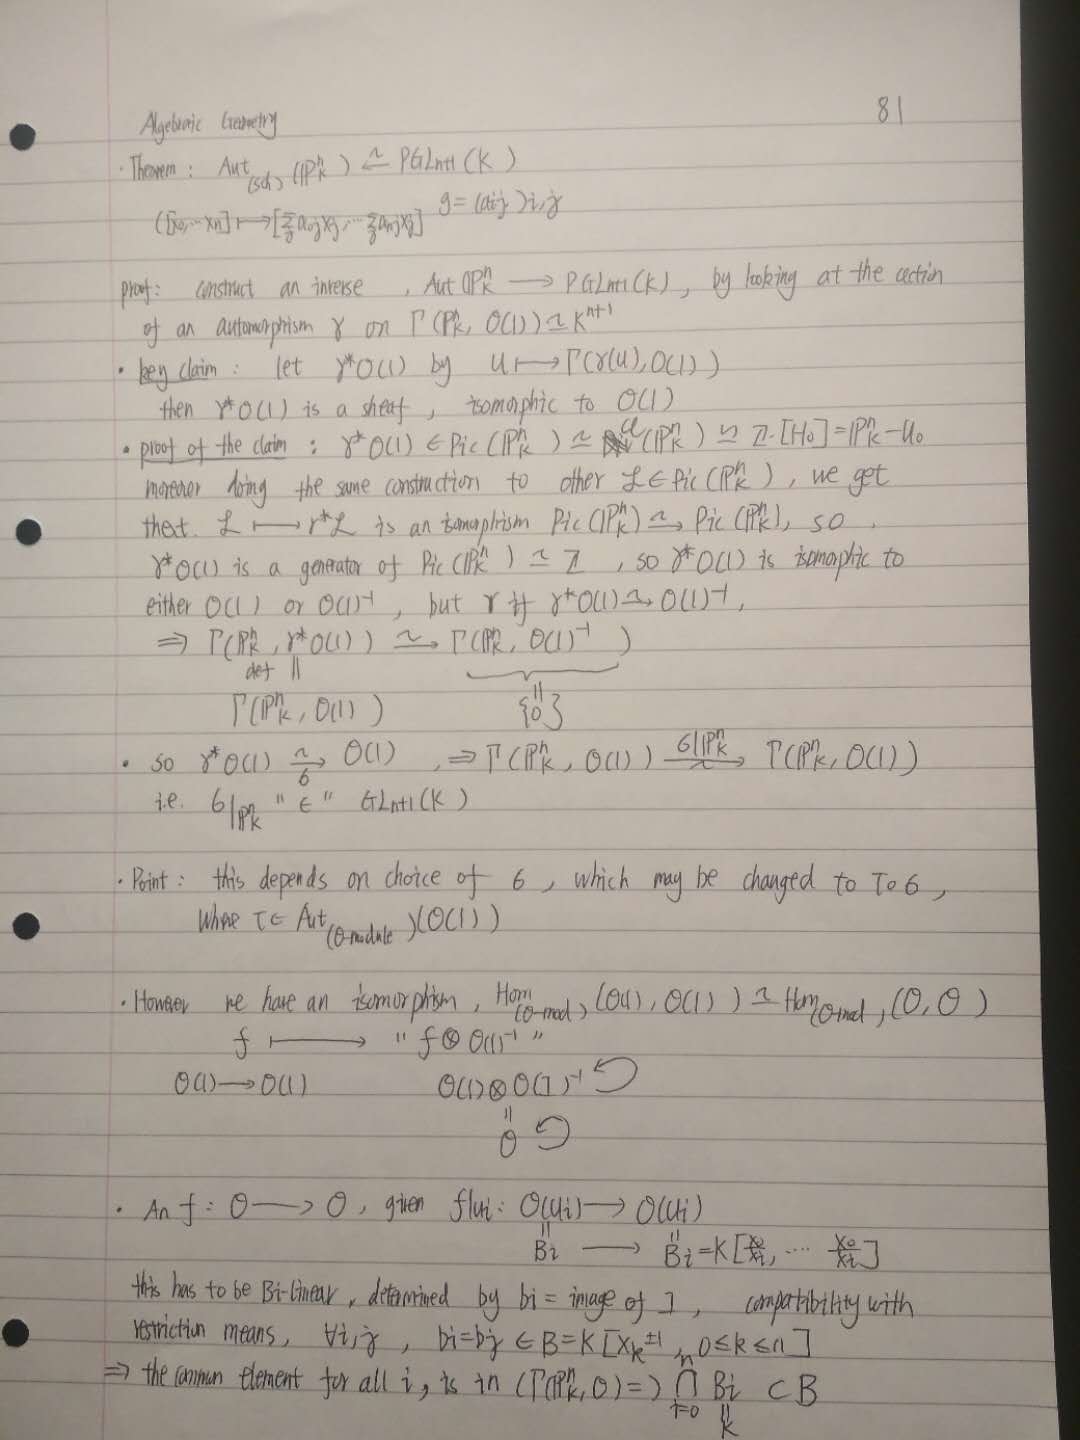 81
Algebraic Geometry
· Theorem: Aut_(sch)(ℙ^n_k) ⥲ PGL_{n+1}(K)
([x_0,…x_n] ↦ [Σ_j a_{0j}x_j, … Σ_j a_{nj}x_j] g=(a_{ij})i,j
proof: construct an inverse, Aut ℙ^n_k → PGL_{n+1}(K), by looking at the action
of an automorphism γ on Γ(ℙ^n_k, O(1)) ≃ K^{n+1}
· key claim: let γ*O(1) by U ↦ Γ(γ(U), O(1))
then γ*O(1) is a sheaf, isomorphic to O(1)
· proof of the claim: γ*O(1) ∈ Pic(ℙ^n_k) ≃ Cl(ℙ^n_k) ≃ ℤ·[H_0] = ℙ^n_k − U_0
moreover doing the same construction to other L ∈ Pic(ℙ^n_k), we get
that L ↦ γ*L is an isomorphism Pic(ℙ^n_k) ⥲ Pic(ℙ^n_k), so
γ*O(1) is a generator of Pic(ℙ^n_k) ≃ ℤ, so γ*O(1) is isomorphic to
either O(1) or O(1)^{-1}, but if γ*O(1) ⥲ O(1)^{-1},
⇒ Γ(ℙ^n_k, γ*O(1)) ⥲ Γ(ℙ^n_k, O(1)^{-1})
def || ||
Γ(ℙ^n_k, O(1)) {0}
· so γ*O(1) ⥲_6 O(1), ⇒ Γ(ℙ^n_k, O(1)) —6|ℙ^n_k→ Γ(ℙ^n_k, O(1))
i.e. 6|ℙ^n_k "∈" GL_{n+1}(K)
· Point: this depends on choice of 6, which may be changed to τ∘6,
where τ ∈ Aut_(O-module)(O(1))
· However we have an isomorphism, Hom_(O-mod),(O(1), O(1)) ≃ Hom_(O-mod),(O, O)
f ↦ "f ⊗ O(1)^{-1}"
O(1) → O(1) O(1) ⊗ O(1)^{-1} ↺
||
O ↺
· An f: O → O, given f|u_i: O(U_i) → O(U_i)
|| ||
B_i → B_i = K[x_0/x_i, … x_0/x_i]
this has to be B_i-linear, determined by b_i = image of 1, compatibility with
restriction means, ∀i,j, b_i = b_j ∈ B = K[x_k^{±1}, 0≤k≤n]
⇒ the common element for all i, is in (Γ(ℙ^n_k, O)=) ⋂_{i=0}^n B_i ⊂ B
||
K